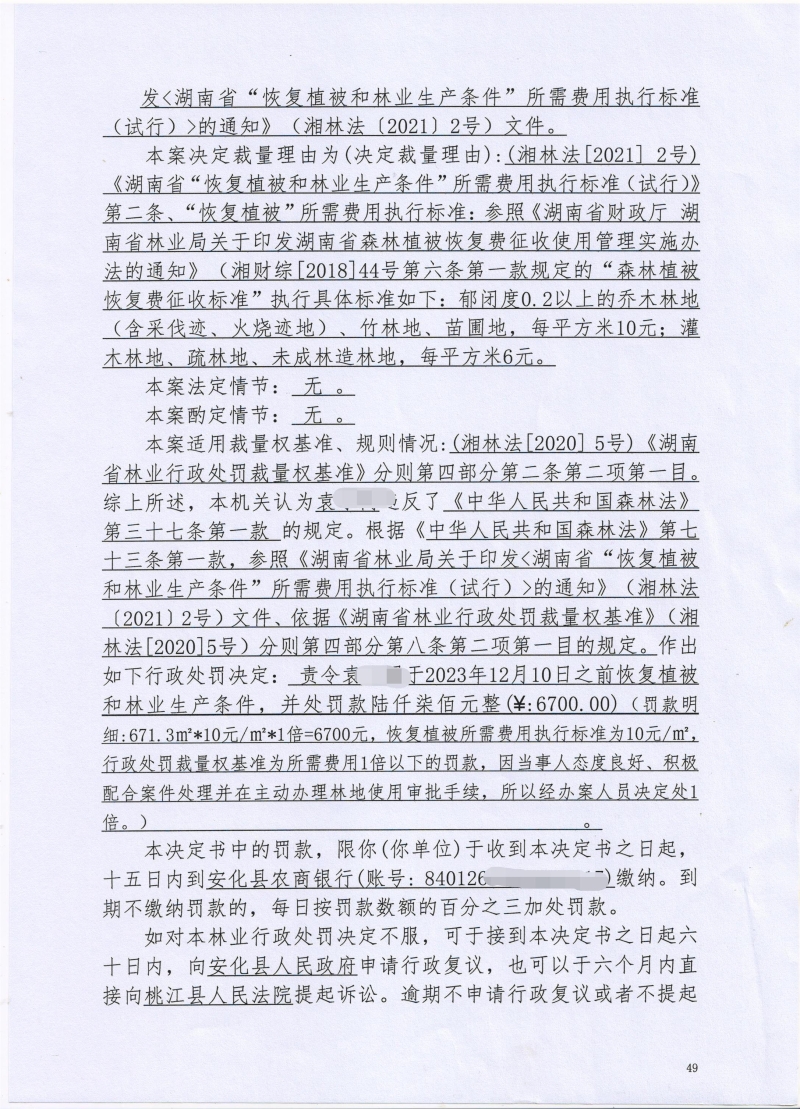 发<湖南省“恢复植被和林业生产条件”所需费用执行标准
（试行）>的通知》（湘林法〔2021〕2号）文件。
本案决定裁量理由为(决定裁量理由):(湘林法[2021] 2号)
《湖南省“恢复植被和林业生产条件”所需费用执行标准(试行)》
第二条、“恢复植被”所需费用执行标准：参照《湖南省财政厅 湖
南省林业局关于印发湖南省森林植被恢复费征收使用管理实施办
法的通知》（湘财综[2018]44号第六条第一款规定的“森林植被
恢复费征收标准”执行具体标准如下：郁闭度0.2以上的乔木林地
（含采伐迹、火烧迹地）、竹林地、苗圃地，每平方米10元；灌
木林地、疏林地、未成林造林地，每平方米6元。
本案法定情节： 无 。
本案酌定情节： 无 。
本案适用裁量权基准、规则情况:(湘林法[2020] 5号)《湖南
省林业行政处罚裁量权基准》分则第四部分第二条第二项第一目。
综上所述，本机关认为袁 反了《中华人民共和国森林法》
第三十七条第一款 的规定。根据《中华人民共和国森林法》第七
十三条第一款，参照《湖南省林业局关于印发<湖南省“恢复植被
和林业生产条件”所需费用执行标准（试行）>的通知》（湘林法
〔2021〕2号）文件、依据《湖南省林业行政处罚裁量权基准》（湘
林法[2020]5号）分则第四部分第八条第二项第一目的规定。作出
如下行政处罚决定： 责令袁 于2023年12月10日之前恢复植被
和林业生产条件，并处罚款陆仟柒佰元整(¥:6700.00)（罚款明
细:671.3㎡*10元/㎡*1倍=6700元，恢复植被所需费用执行标准为10元/㎡，
行政处罚裁量权基准为所需费用1倍以下的罚款，因当事人态度良好、积极
配合案件处理并在主动办理林地使用审批手续，所以经办案人员决定处1
倍。） 。
本决定书中的罚款，限你(你单位)于收到本决定书之日起，
十五日内到安化县农商银行(账号：840126 )缴纳。到
期不缴纳罚款的，每日按罚款数额的百分之三加处罚款。
如对本林业行政处罚决定不服，可于接到本决定书之日起六
十日内，向安化县人民政府申请行政复议，也可以于六个月内直
接向桃江县人民法院提起诉讼。逾期不申请行政复议或者不提起
49